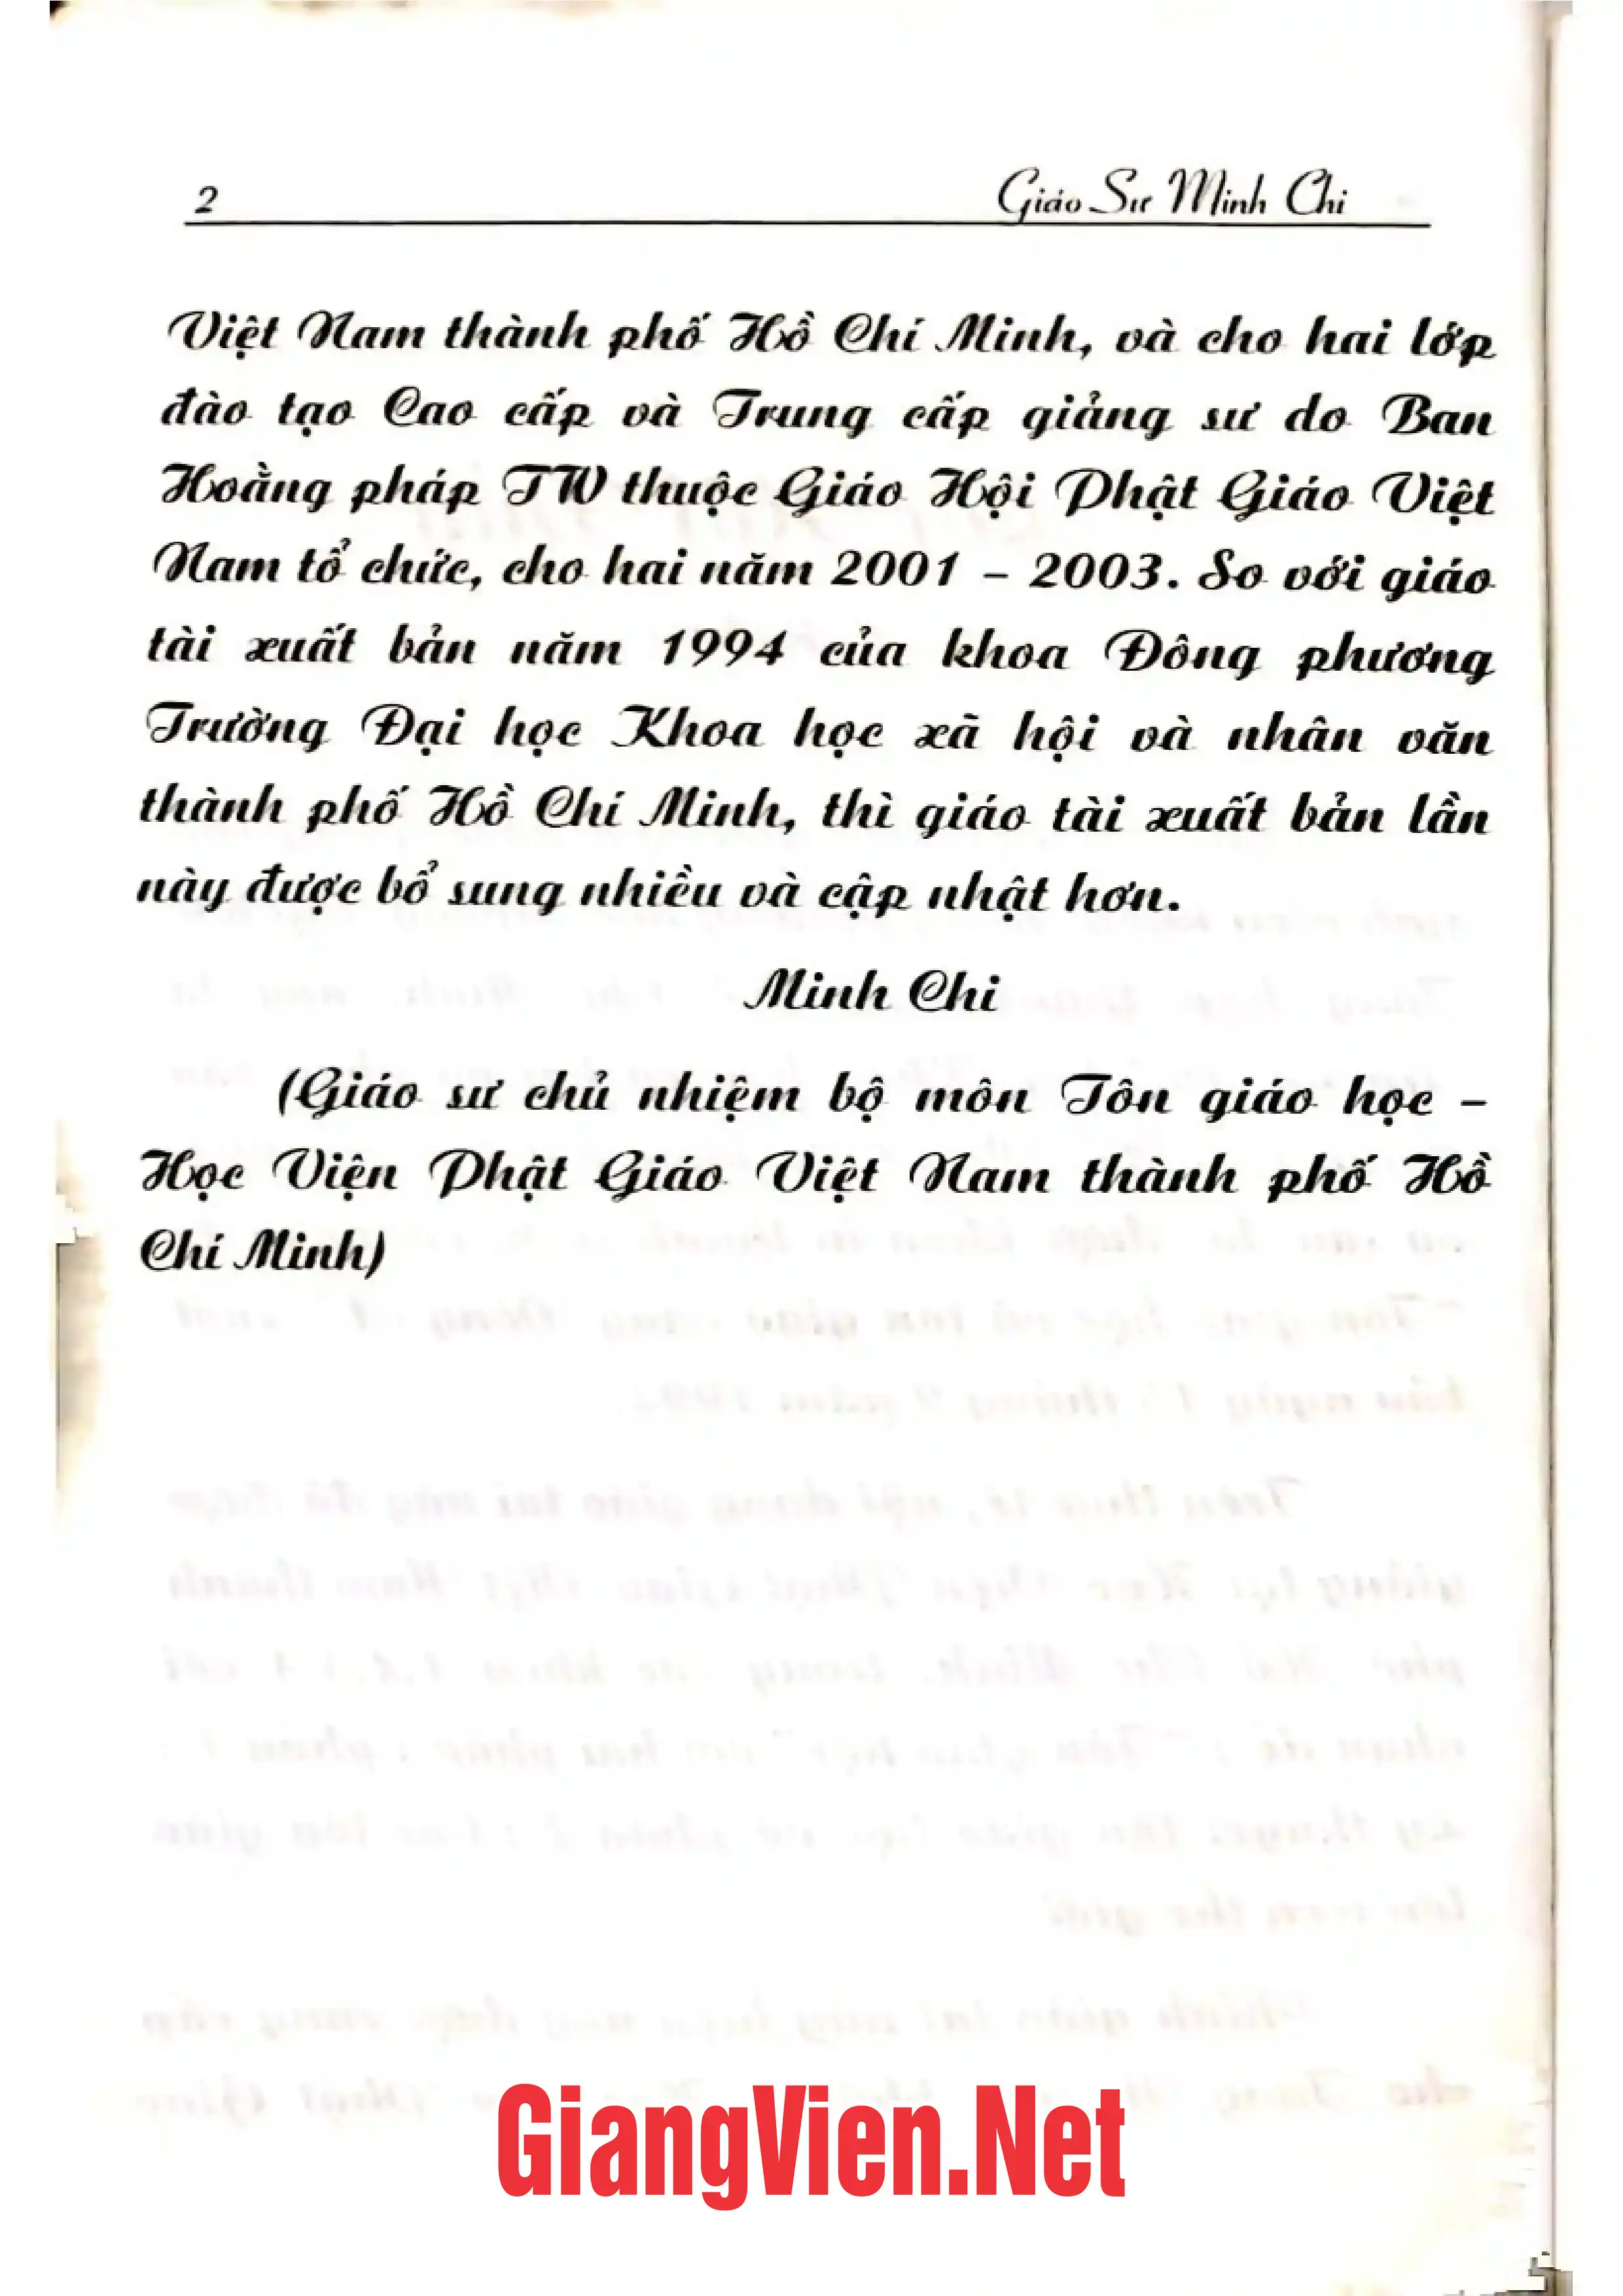 2 Giáo Sư Minh Chi
Việt Nam thành phố Hồ Chí Minh, và cho hai lớp
đào tạo Cao cấp và Trung cấp giảng sư do Ban
Hoằng pháp TW thuộc Giáo Hội Phật Giáo Việt
Nam tổ chức, cho hai năm 2001 – 2003. So với giáo
tài xuất bản năm 1994 của khoa Đông phương
Trường Đại học Khoa học xã hội và nhân văn
thành phố Hồ Chí Minh, thì giáo tài xuất bản lần
này được bổ sung nhiều và cập nhật hơn.
Minh Chi
(Giáo sư chủ nhiệm bộ môn Tôn giáo học –
Học Viện Phật Giáo Việt Nam thành phố Hồ
Chí Minh)
GiangVien.Net